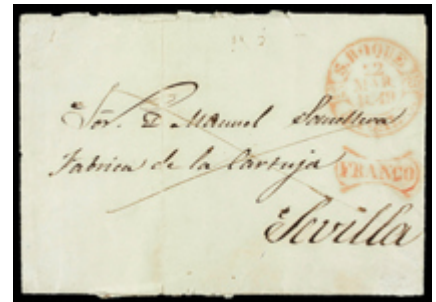 S. ROQUE
12
MAR
Sor. D. Manuel
Fabrica de la Cartuja
FRANCO
Sevilla